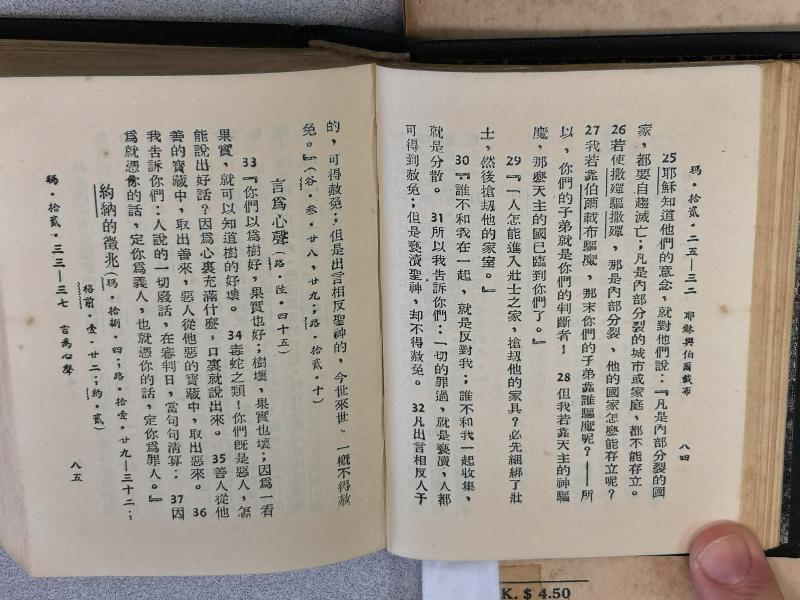 瑪・拾貳・二五—三二　耶穌與伯爾載布　八四
25耶穌知道他們的意念，就對他們說：『凡是內部分裂的國
家，都要自趨滅亡；凡是內部分裂的城市或家庭，都不能存立。
26若使撒殫驅撒殫，那是內部分裂，他的國家怎麼能存立呢？
27我若靠伯爾載布驅魔，那末你們的子弟靠誰驅魔呢？——所
以，你們的子弟就是你們的判斷者！　28但我若靠天主的神驅
魔，那麼天主的國已臨到你們了。』
29『一人怎能進入壯士之家，搶刧他的家具？必先綑綁了壯
士，然後搶刧他的家室。』
30『誰不和我在一起，就是反對我；誰不和我一起收集，
就是分散。　31所以我告訴你們：一切的罪過，就是褻瀆，人都
可得到赦免；但是褻瀆聖神，却不得赦免。　32凡出言相反人子
的，可得赦免；但是出言相反聖神的，今世來世、一概不得赦
免。』（谷・叁・廿八，廿九；路・拾貳・十）
言爲心聲（路・陸・四十五）
33『你們以爲樹好，果實也好；樹壞，果實也壞；因爲一看
果實，就可以知道樹的好壞。　34毒蛇之類！你們旣是惡人，怎
能說出好話？因爲心裏充滿什麼，口裏就說出來。　35善人從他
善的寶藏中，取出善來，惡人從他惡的寶藏中，取出惡來。　36
我告訴你們：人說的一切廢話，在審判日，當句句清算：　37因
爲就憑你的話，定你爲義人，也就憑你的話，定你爲罪人。』
約納的徵兆（瑪・拾捌・四；路・拾壹・廿九—三十二；
格前・壹・廿二；約・貳）
瑪・拾貳・三三—三七　言爲心聲　八五
K. $ 4.50